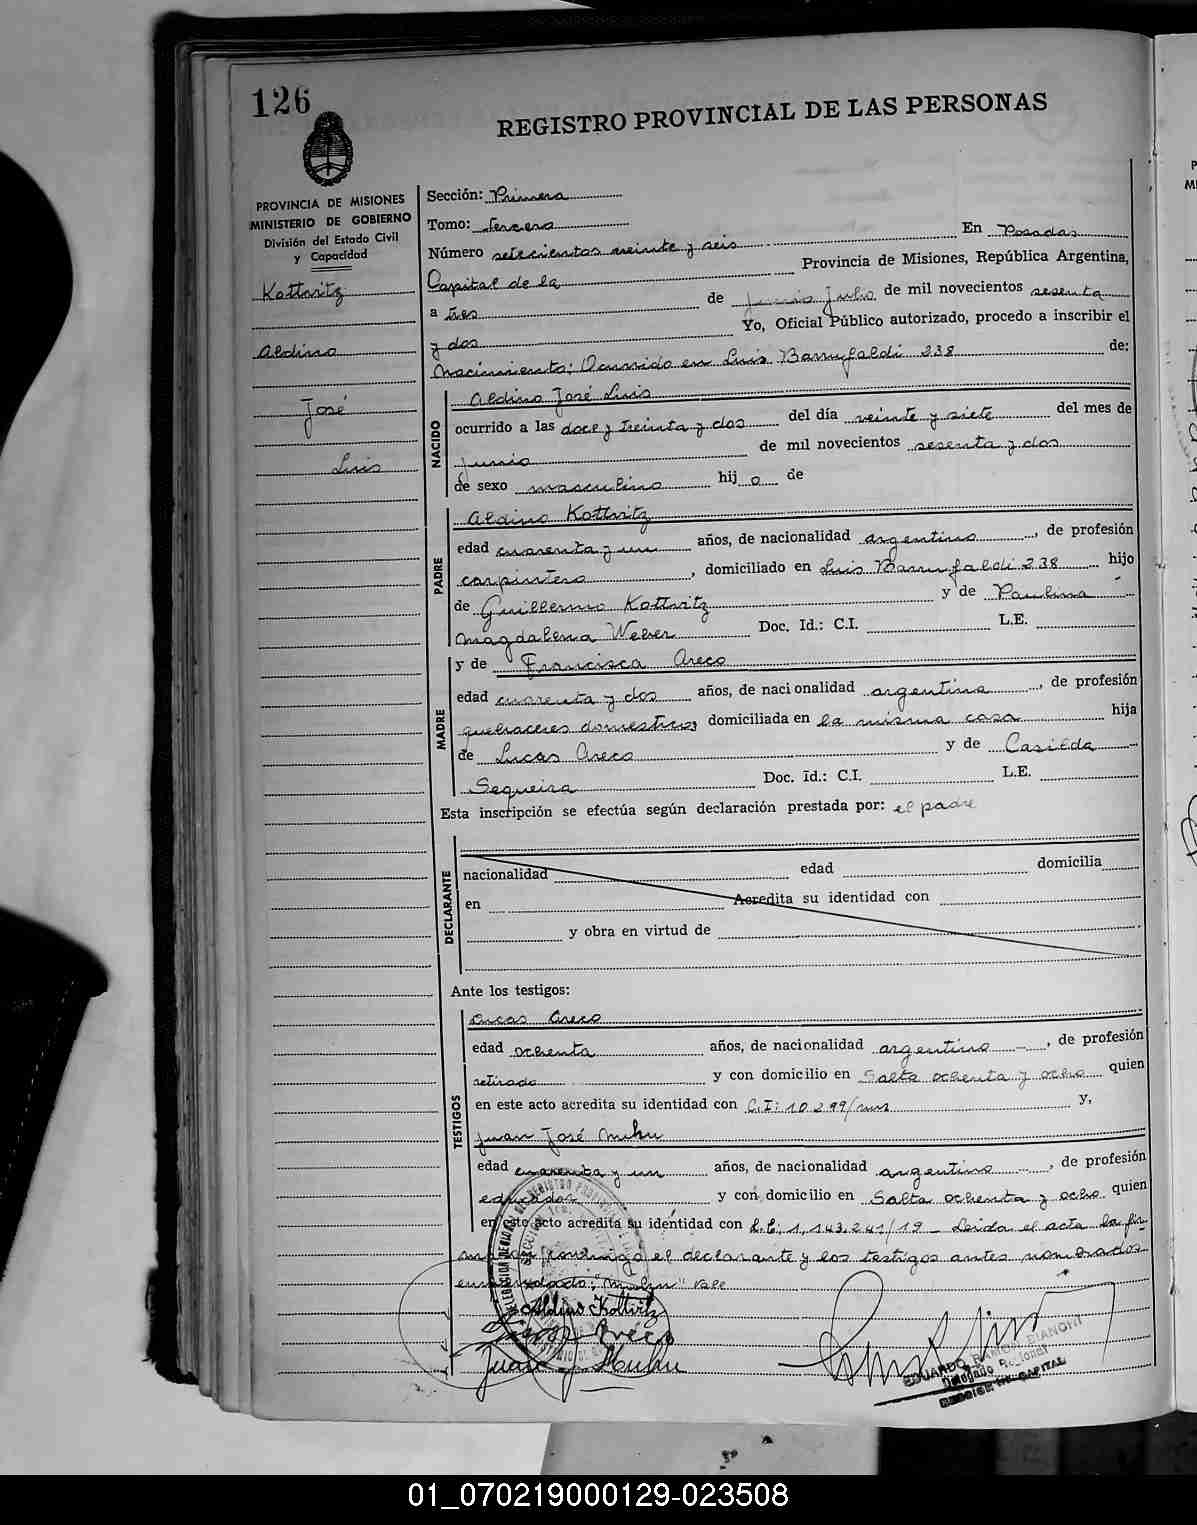 126
REGISTRO PROVINCIAL DE LAS PERSONAS
PROVINCIA DE MISIONES
MINISTERIO DE GOBIERNO
División del Estado Civil
y Capacidad
Kottvitz
Aldino
José
Luis
Sección: Primera
Tomo: Tercero
Número setecientos veinte y seis En Posadas
Capital de la Provincia de Misiones, República Argentina,
a tres de Julio de mil novecientos sesenta
y dos Yo, Oficial Público autorizado, procedo a inscribir el
Nacimiento: Ocurrido en Luis Barrufaldi 238 de:
NACIDO
Aldino José Luis
ocurrido a las doce y treinta y dos del día veinte y siete del mes de
junio de mil novecientos sesenta y dos
de sexo masculino hij o de
PADRE
Aldino Kottvitz
edad cuarenta y un años, de nacionalidad argentino, de profesión
carpintero, domiciliado en Luis Barrufaldi 238 hijo
de Guillermo Kottvitz y de Paulina
Magdalena Weber Doc. Id.: C.I. L.E.
MADRE
y de Francisca Areco
edad cuarenta y dos años, de nacionalidad argentina, de profesión
quehaceres domesticos domiciliada en la misma casa hija
de Lucas Areco y de Casilda
Sequeira Doc. Id.: C.I. L.E.
Esta inscripción se efectúa según declaración prestada por: el padre
DECLARANTE
nacionalidad edad domicilia
en Acredita su identidad con
y obra en virtud de
Ante los testigos:
TESTIGOS
Areco
edad ochenta años, de nacionalidad argentino, de profesión
retirado y con domicilio en Salta ochenta y ocho quien
en este acto acredita su identidad con C.I: 10.299 y,
Juan José
edad cuarenta y un años, de nacionalidad argentino, de profesión
y con domicilio en Salta ochenta y ocho quien
en este acto acredita su identidad con L.E: 1,143.241/19 - Leida el acta la fir-
man conmigo el declarante y los testigos antes nombrados
enmendado: vale
Aldino Kottvitz
Areco
Juan J.
EDUARDO RAMON BIANCHI
Delegado Regional
CAPITAL
01_070219000129-023508